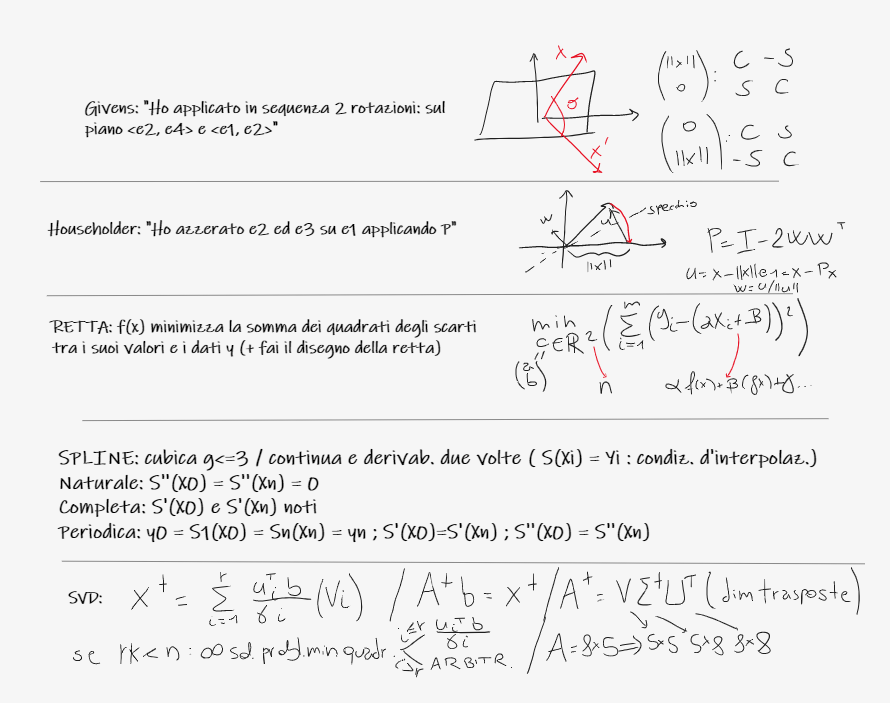 Givens: "Ho applicato in sequenza 2 rotazioni: sul
piano <e2, e4> e <e1, e2>"
x
σ
x'
(||x|| 0) : C -S
S C
(0 ||x||) : C S
-S C
Householder: "Ho azzerato e2 ed e3 su e1 applicando P"
w
u
specchio
||x||
P = I - 2ww^T
u = x - ||x||e1 = x - Px
w = u/||u||
RETTA: f(x) minimizza la somma dei quadrati degli scarti
tra i suoi valori e i dati y (+ fai il disegno della retta)
min c∈R^2 ( Σ i=1 m (yi - (αxi + B))^2 )
n
α f(x) + B (gx) + γ...
SPLINE: cubica g<=3 / continua e derivab. due volte ( S(Xi) = Yi : condiz. d'interpolaz.)
Naturale: S''(X0) = S''(Xn) = 0
Completa: S'(X0) e S'(Xn) noti
Periodica: y0 = S1(X0) = Sn(Xn) = yn ; S'(X0)=S'(Xn) ; S''(X0) = S''(Xn)
SVD: x^+ = Σ i=1 r ui^T b / γi (Vi) / A^+ b = x^+ / A^+ = V Σ^+ U^T (dim trasposte)
se rk < n : ∞ sol. probl. min quadr. < i≤r ui^T b / γi
i>r ARBITR.
/ A = 8×5 ⇒ 5×5 5×8 8×8